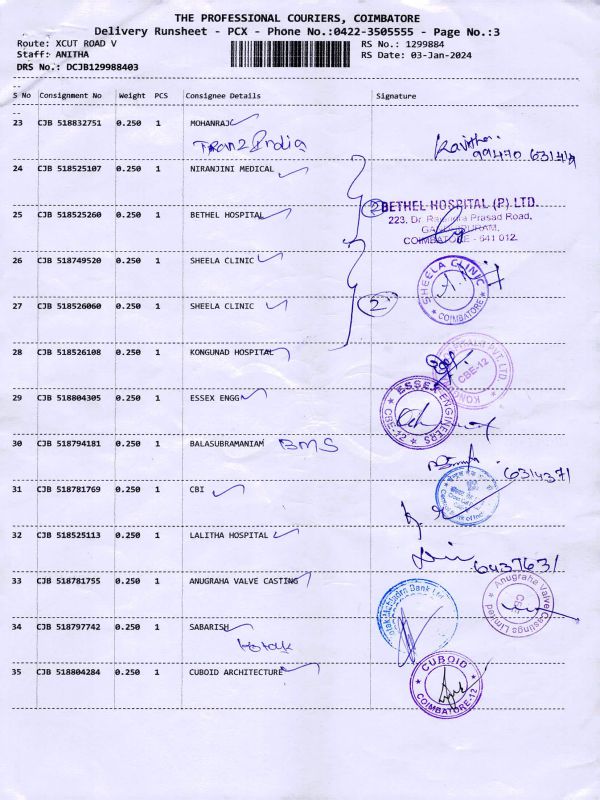 THE PROFESSIONAL COURIERS, COIMBATORE
Delivery Runsheet - PCX - Phone No.:0422-3505555 - Page No.:3
Route: XCUT ROAD V RS No.: 1299884
Staff: ANITHA RS Date: 03-Jan-2024
DRS No.: DCJB129988403
S No Consignment No Weight PCS Consignee Details Signature
23 CJB 518832751 0.250 1 MOHANRAJ
India
99470 63144
24 CJB 518525107 0.250 1 NIRANJINI MEDICAL
2 BETHEL HOSPITAL (P) LTD.
25 CJB 518525260 0.250 1 BETHEL HOSPITAL
223, Dr. Rajendra Prasad Road,
GANDHIPURAM,
COIMBATORE - 641 012.
26 CJB 518749520 0.250 1 SHEELA CLINIC
SHEELA CLINIC
COIMBATORE
27 CJB 518526060 0.250 1 SHEELA CLINIC 2
28 CJB 518526108 0.250 1 KONGUNAD HOSPITAL
PVT. LTD.
CBE-12
29 CJB 518804305 0.250 1 ESSEX ENGG
ESSEX ENGINEERS
CBE-12
30 CJB 518794181 0.250 1 BALASUBRAMANIAM BMS
6314371
31 CJB 518781769 0.250 1 CBI
32 CJB 518525113 0.250 1 LALITHA HOSPITAL
6437631
33 CJB 518781755 0.250 1 ANUGRAHA VALVE CASTING
Anugraha Valve Castings Limited
Mahindra Bank Ltd
34 CJB 518797742 0.250 1 SABARISH
Kotak
35 CJB 518804284 0.250 1 CUBOID ARCHITECTURE
CUBOID
COIMBATORE-12